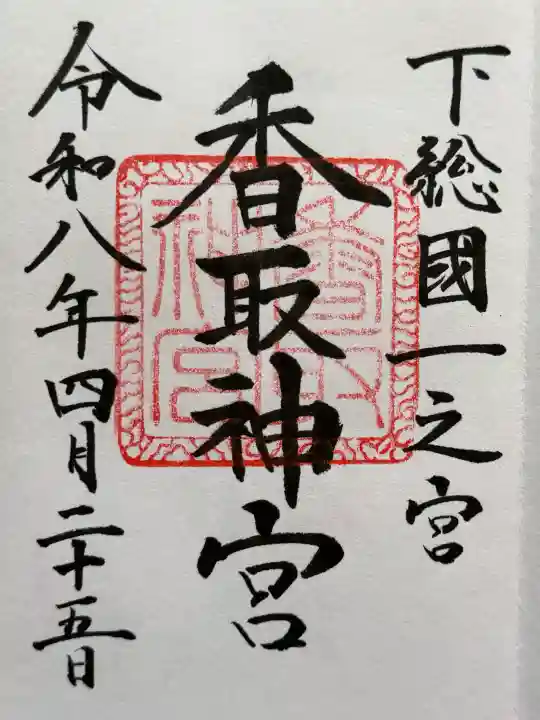 下総國一之宮
香取神宮
香取神宮
令和八年四月二十五日